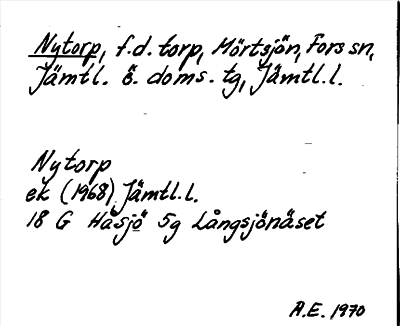 Nytorp, f.d. torp, Mörtsjön, Fors sn,
Jämtl. ö. doms. tg, Jämtl.l.
Nytorp
ek (1968) Jämtl.l.
18 G Håsjö 5g Långsjönäset
A.E. 1970